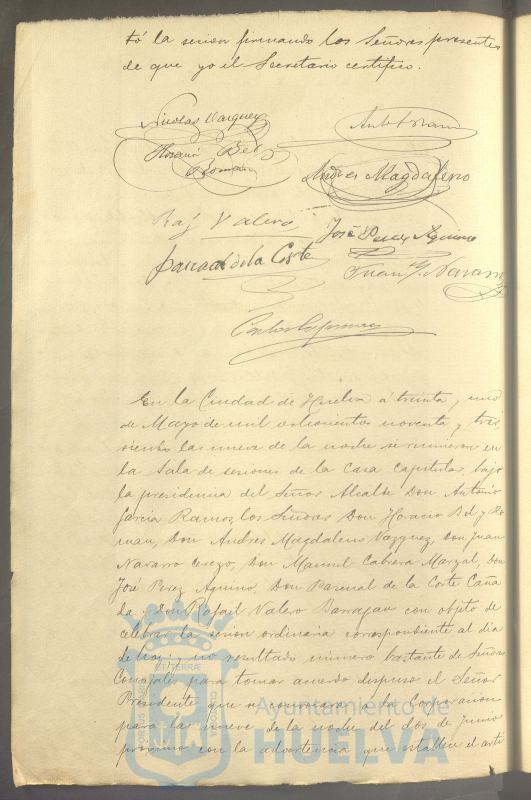 tó la sesion firmando los Señores presentes
de que yo el Secretario certifico.
Nicolas Vazquez
Horacio Bel y
Roman
Andres Magdaleno
Raf Valero
José Perez Aquino
Pascual de la Corte
Juan Navarro
En la Ciudad de Huelva á treinta y uno
de Mayo de mil ochocientos noventa y tres
siendo las nueve de la noche se reunieron en
la Sala de sesiones de la casa capitular, bajo
la presidencia del Señor Alcalde Don Antonio
Garcia Ramos, los Señores Don Horacio Bel y Ro
man, Don Andres Magdaleno Vazquez, Don Juan
Navarro Cerezo, Don Manuel Cabrera Marzal, Don
José Perez Aquino, Don Pascual de la Corte Caña
da y Don Rafael Valero Barragan con objeto de
celebrar la sesion ordinaria correspondiente al dia
de hoy; y no resultado número bastante de Señores
Concejales para tomar acuerdo dispuso el Señor
Presidente que se convocara a la Corporacion
para las nueve de la noche del dos de Junio
proximo con la advertencia que establece el arti
Ayuntamiento de
HUELVA